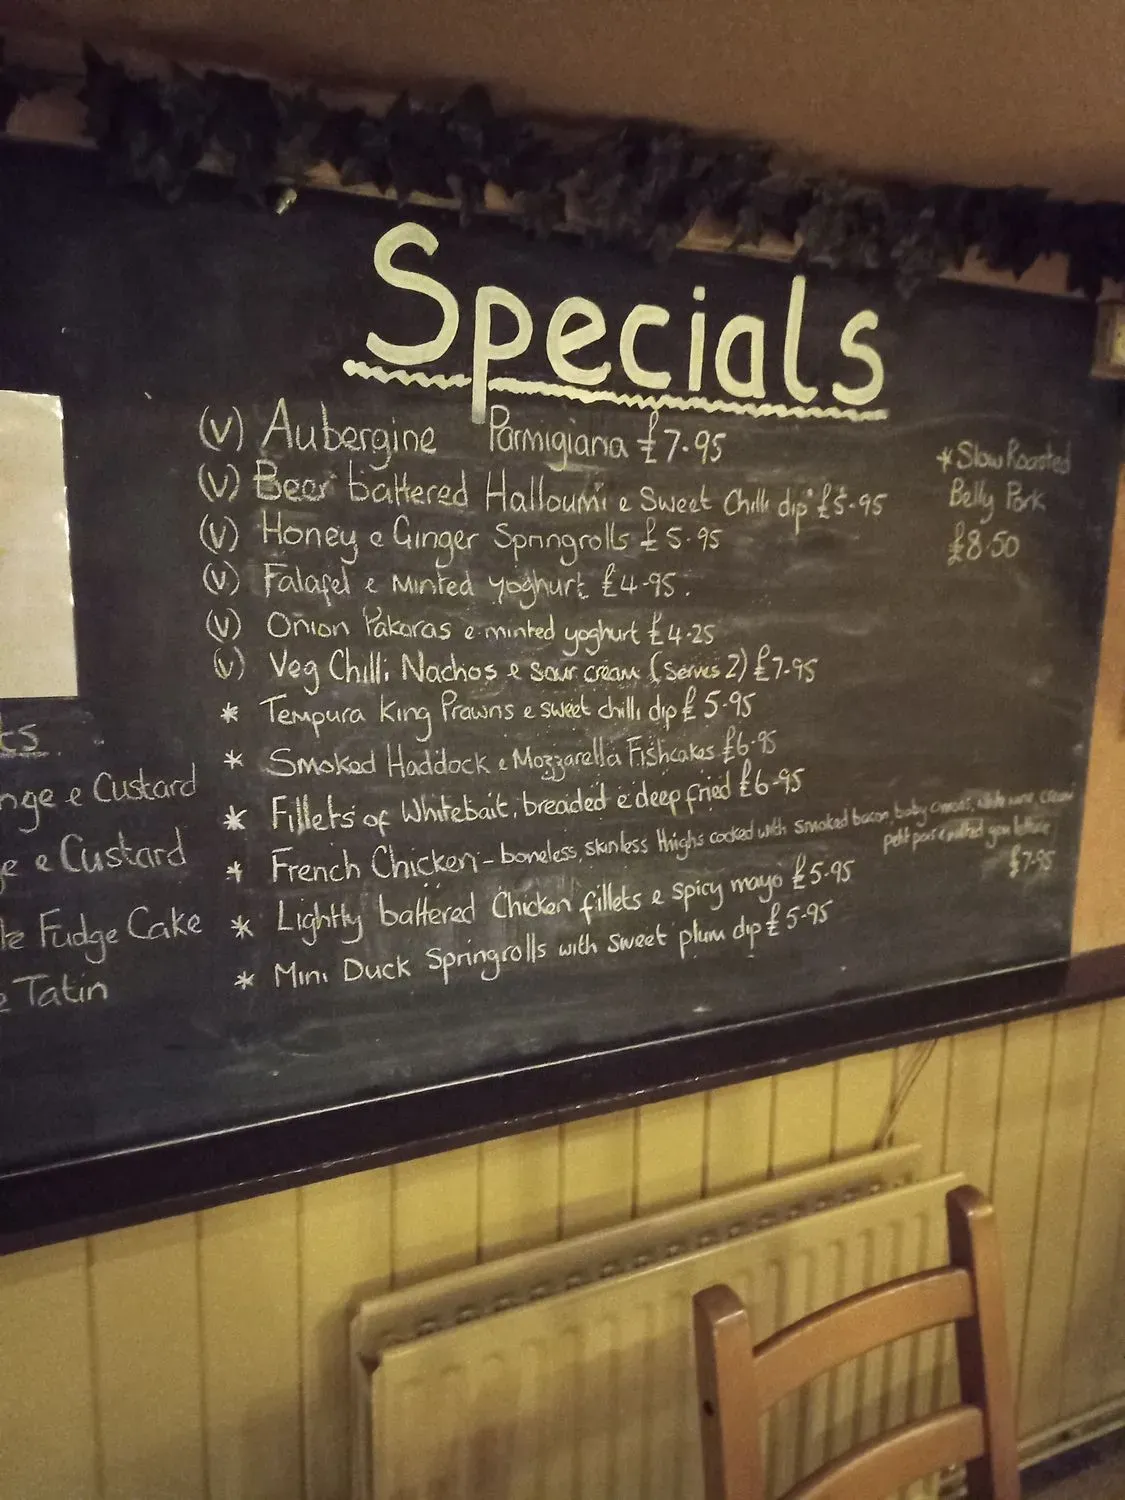 Specials
(V) Aubergine Parmigiana £7.95
(V) Beer battered Halloumi e Sweet Chilli dip £5.95
(V) Honey e Ginger Springrolls £5.95
(V) Falafel e minted yoghurt £4.95.
(V) Onion Pakoras e minted yoghurt £4.25
(V) Veg Chilli Nachos e sour cream (Serves 2) £7.95
* Tempura King Prawns e sweet chilli dip £5.95
* Smoked Haddock e Mozzarella Fishcakes £6.95
* Fillets of Whitebait, breaded e deep fried £6.95
* French Chicken - boneless, skinless thighs cooked with smoked bacon, baby onions, white wine, cream
petit pois e wilted gem lettuce
£7.95
* Lightly battered Chicken fillets e spicy mayo £5.95
* Mini Duck Springrolls with sweet plum dip £5.95
* Slow Roasted
Belly Pork
£8.50
ts
nge e Custard
e e Custard
le Fudge Cake
e Tatin